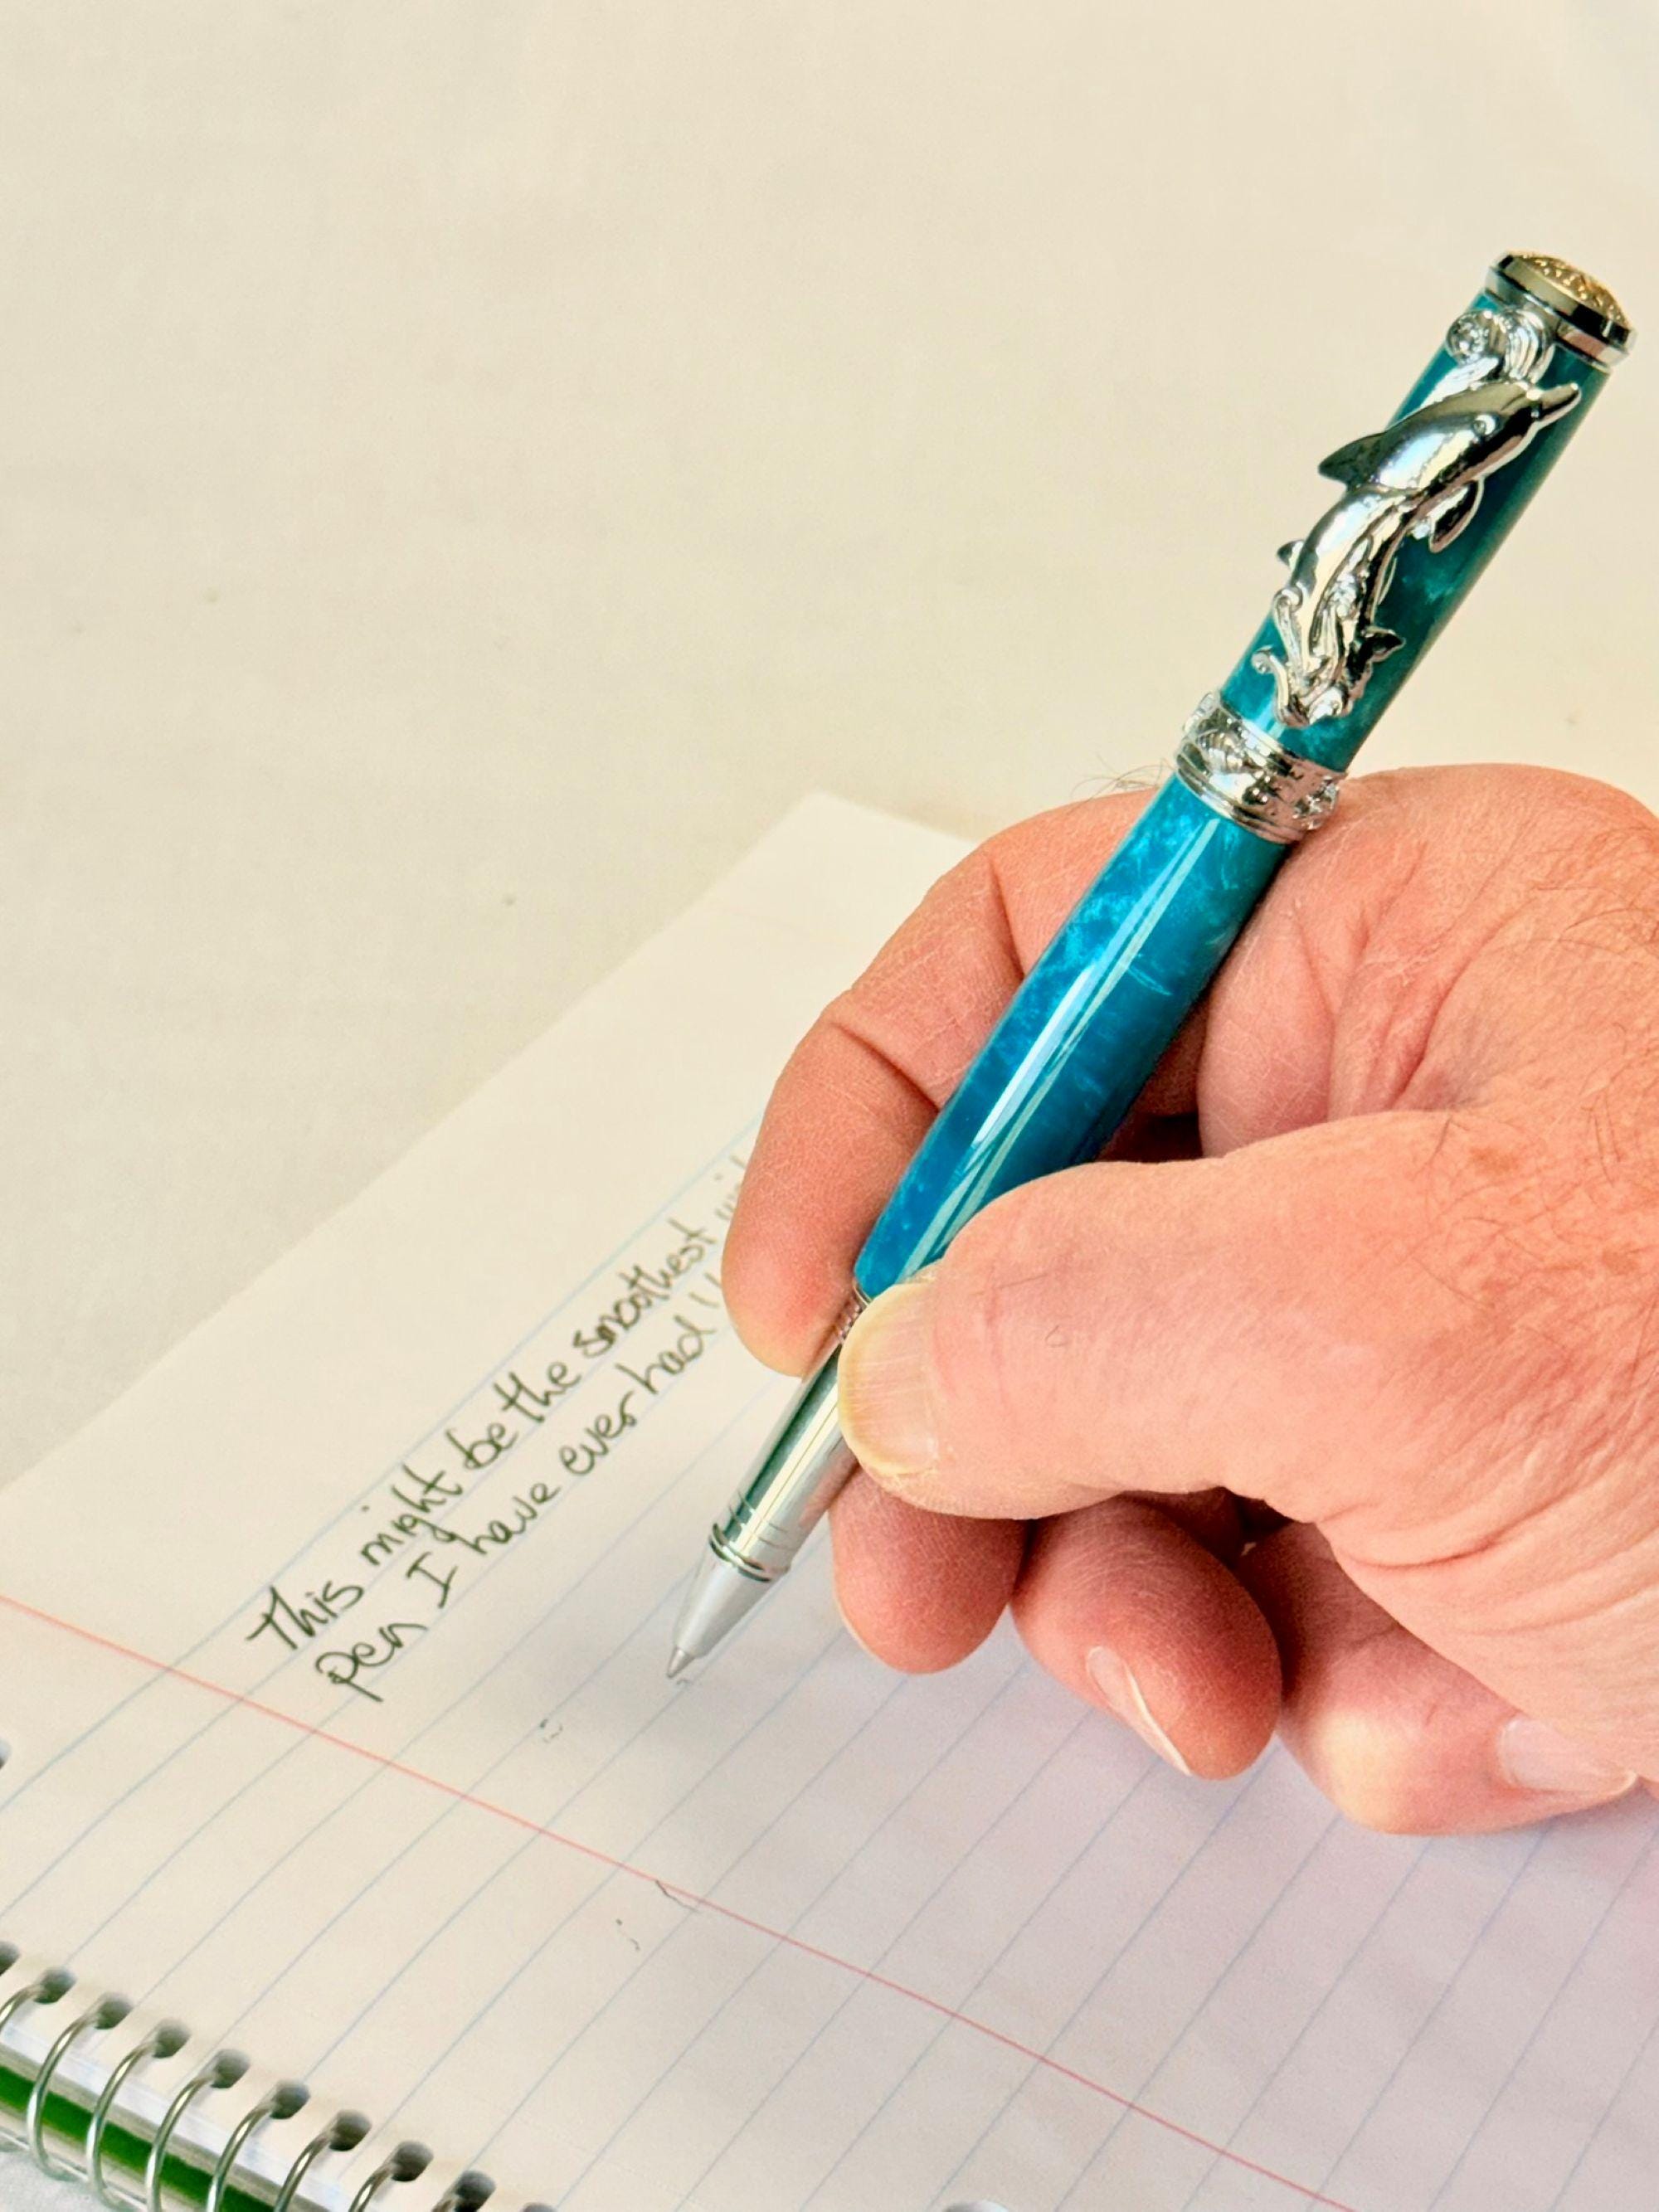 This might be the smoothest
pen I have ever had !!